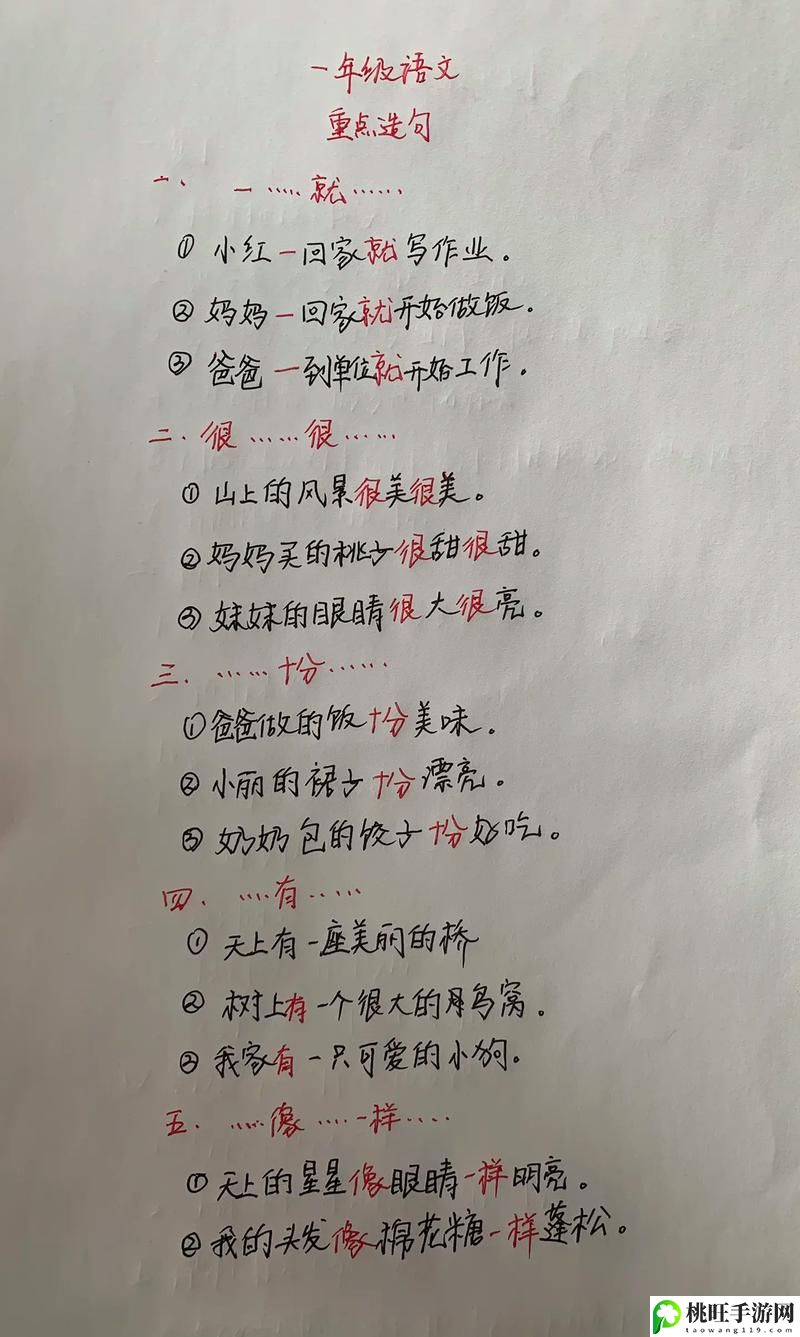 一年级语文
重点造句
一、一……就……
① 小红一回家就写作业。
② 妈妈一回家就开始做饭。
③ 爸爸一到单位就开始工作。
二.很……很……
① 山上的风景很美很美。
② 妈妈买的桃子很甜很甜。
③ 妹妹的眼睛很大很亮。
三.……十分……
① 爸爸做的饭十分美味。
② 小丽的裙子十分漂亮。
③ 奶奶包的饺子十分好吃。
四.……有……
① 天上有一座美丽的桥
② 树上有一个很大的鸟窝。
③ 我家有一只可爱的小狗。
五.……像……一样……
① 天上的星星像眼睛一样明亮。
② 我的头发像棉花糖一样蓬松。
桃旺手游网
taowang119.com